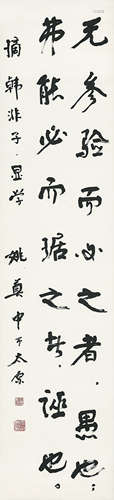 无参验而必之者，愚也；
弗能必而据之者，诬也。
摘韩非子·显学 姚奠中于太原